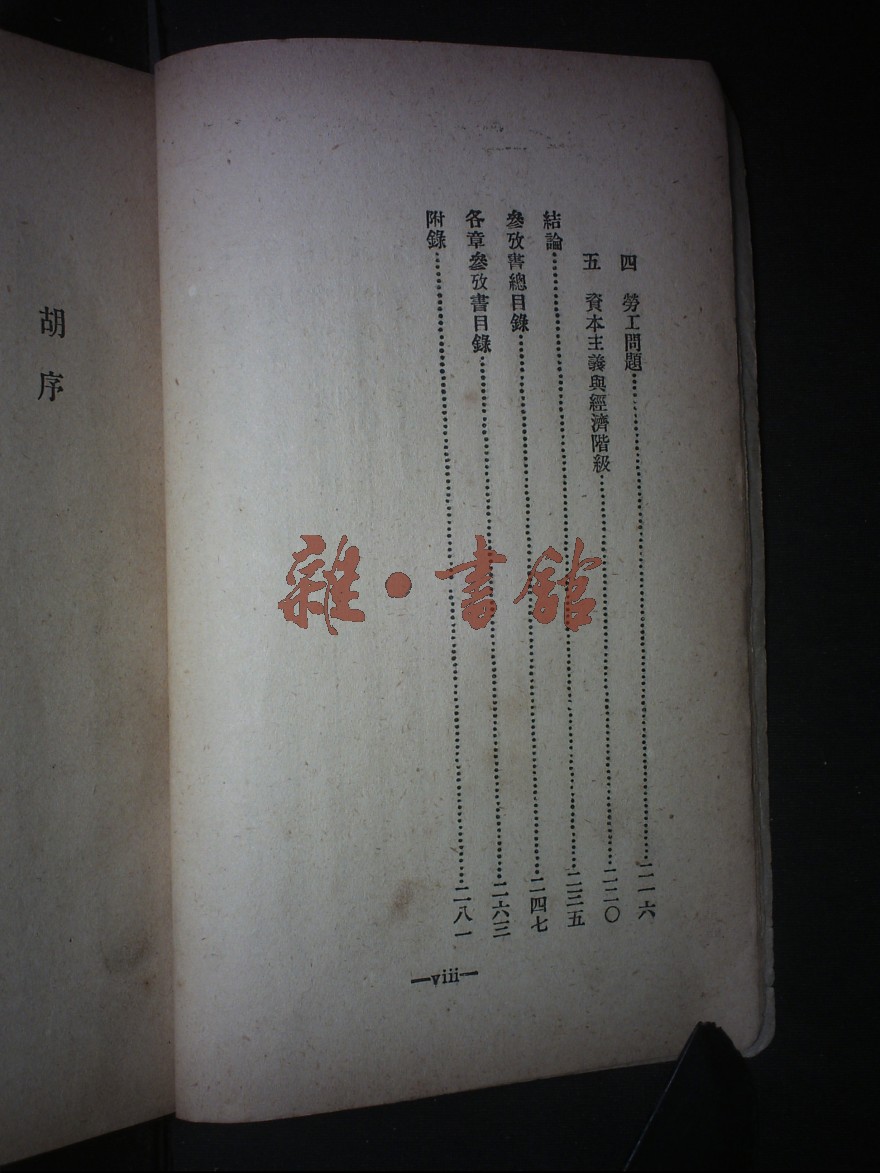 四 勞工問題……二一六
五 資本主義與經濟階級……二二〇
結論……二三五
參攷書總目錄……二四七
各章參攷書目錄……二六三
附錄……二八一
—viii—
胡序
雜·書館